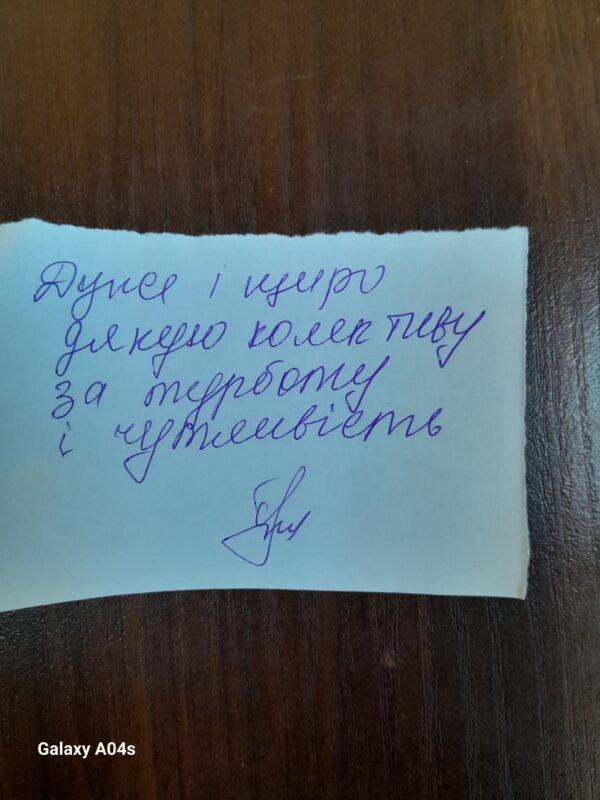 Дуже і щиро
дякую колективу
за турботу
і чутливість
Galaxy A04s